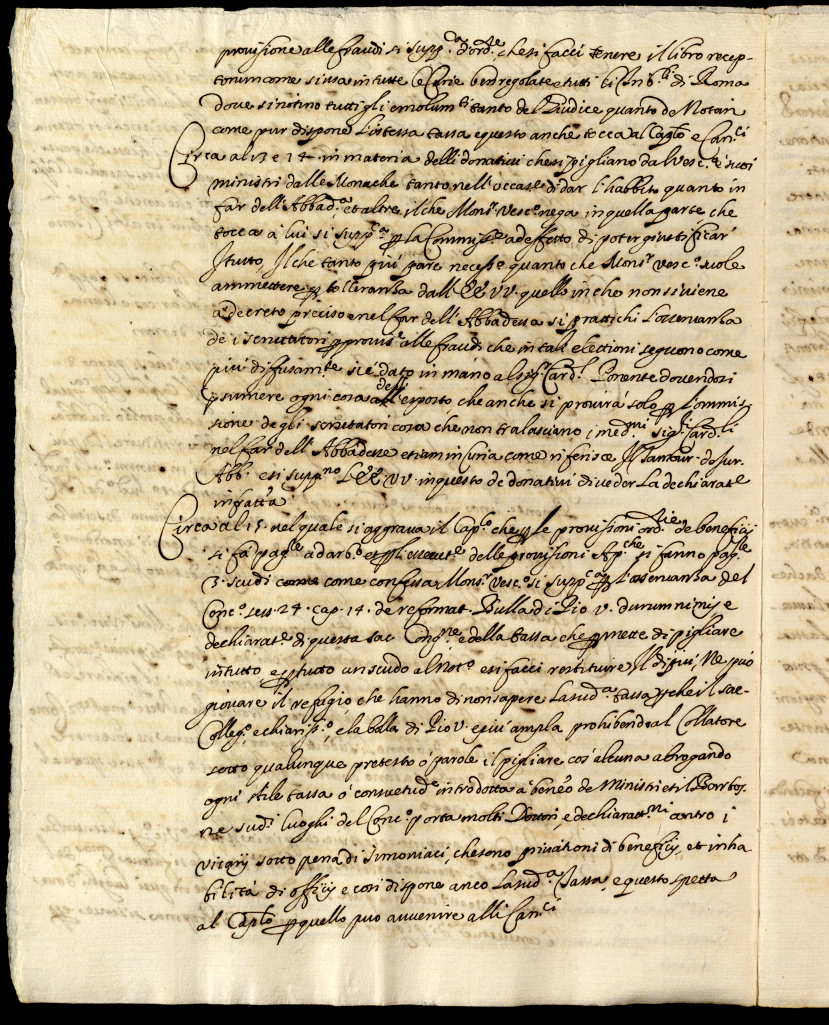 provisione alle fraudi si supp.ca d'ord.e che si facci tenere il libro recep-
torum come si usa in tutte le Curie ben regolate e tutti li Trib.li di Roma
dove si notino tutti gli emolum.ti tanto del Giudice quanto de Notari
come pur dispone l'istessa tassa e questo anche tocca al Caplo e Can.ci
Circa al 13 e 14 in materia delli donativi che si pigliano dal Vesc.o e suoi
ministri dalle Monache tanto nell'occas.e di dar l'habbito quanto in
far dell'Abbad.a et altre il che Mons.r Vesc.o nega in quella parte che
tocca a lui si supp.ca p la Commiss.e ad effetto di poter giustificar
il tutto, Il che tanto più pare necess.o quanto che Mons.r Vesc.o suole
ammettere p tolleranza dall'EE VV. quello in che non si viene
a decreto preciso e nel far dell'Abbadessa si prattichi l'osservanza
de i scrutatori p provis.e alle fraudi che in tali elettioni seguono come
più diffusam.te si è dato in mano al sig.r Card.l Ponente dovendosi
psumere ogni cosa dell'esposto che anche si provirà solo p l'ommis-
sione degli scrutatori cosa che non tralasciano i med.mi sig.ri Card.li
nel far dell'Abbadesse etiam in Curia come riferisce il Tambur. de Jur.
Abb. e si supp.no l'EE VV. in questo de donativi di veder la dechiarat.e
in fatt'a
Circa al 15. nel quale si aggrava il Cap.lo che p le provisioni ord.rie de beneficij
si fa pag.re ad arb.o et p l'essecut.e delle provisioni Ap.che si fanno pag.re
3. scudi come come confessa Mons.r Vesc.o si supp.ca p l'osservanza del
Conc.o sess. 24. cap. 14. de reformat. Bulla di Pio V. durum nimis e
dechiarat.e di questa sac. Cong.ne e della tassa che pmette di pigliare
in tutto, e p tutto un scudo al Not.o e si facci restituire il di più, Ne può
giovare il refugio che hanno di non sapere la sud.a tassa pche il sac.
Colleg.o, e chiariss.o, e la bolla di Pio V. e più ampla prohibendo al Collatore
sotto qualunque pretesto ò parole il pigliare cos'alcuna abrogando
ogni stile tassa ò consuetud.e introdotta à benef.o de Ministri et il Barbos.
ne sud.i luoghi del Conc.o porta molti Dottori, e dechiaratt.ni contro i
Vicarij sotto pena di simoniaci, che sono privationi di beneficij, et inha
bilità di officij e così dispone anco la sud.a Tassa, e questo spetta
al Caplo p quello può avvenire alli Can.ci